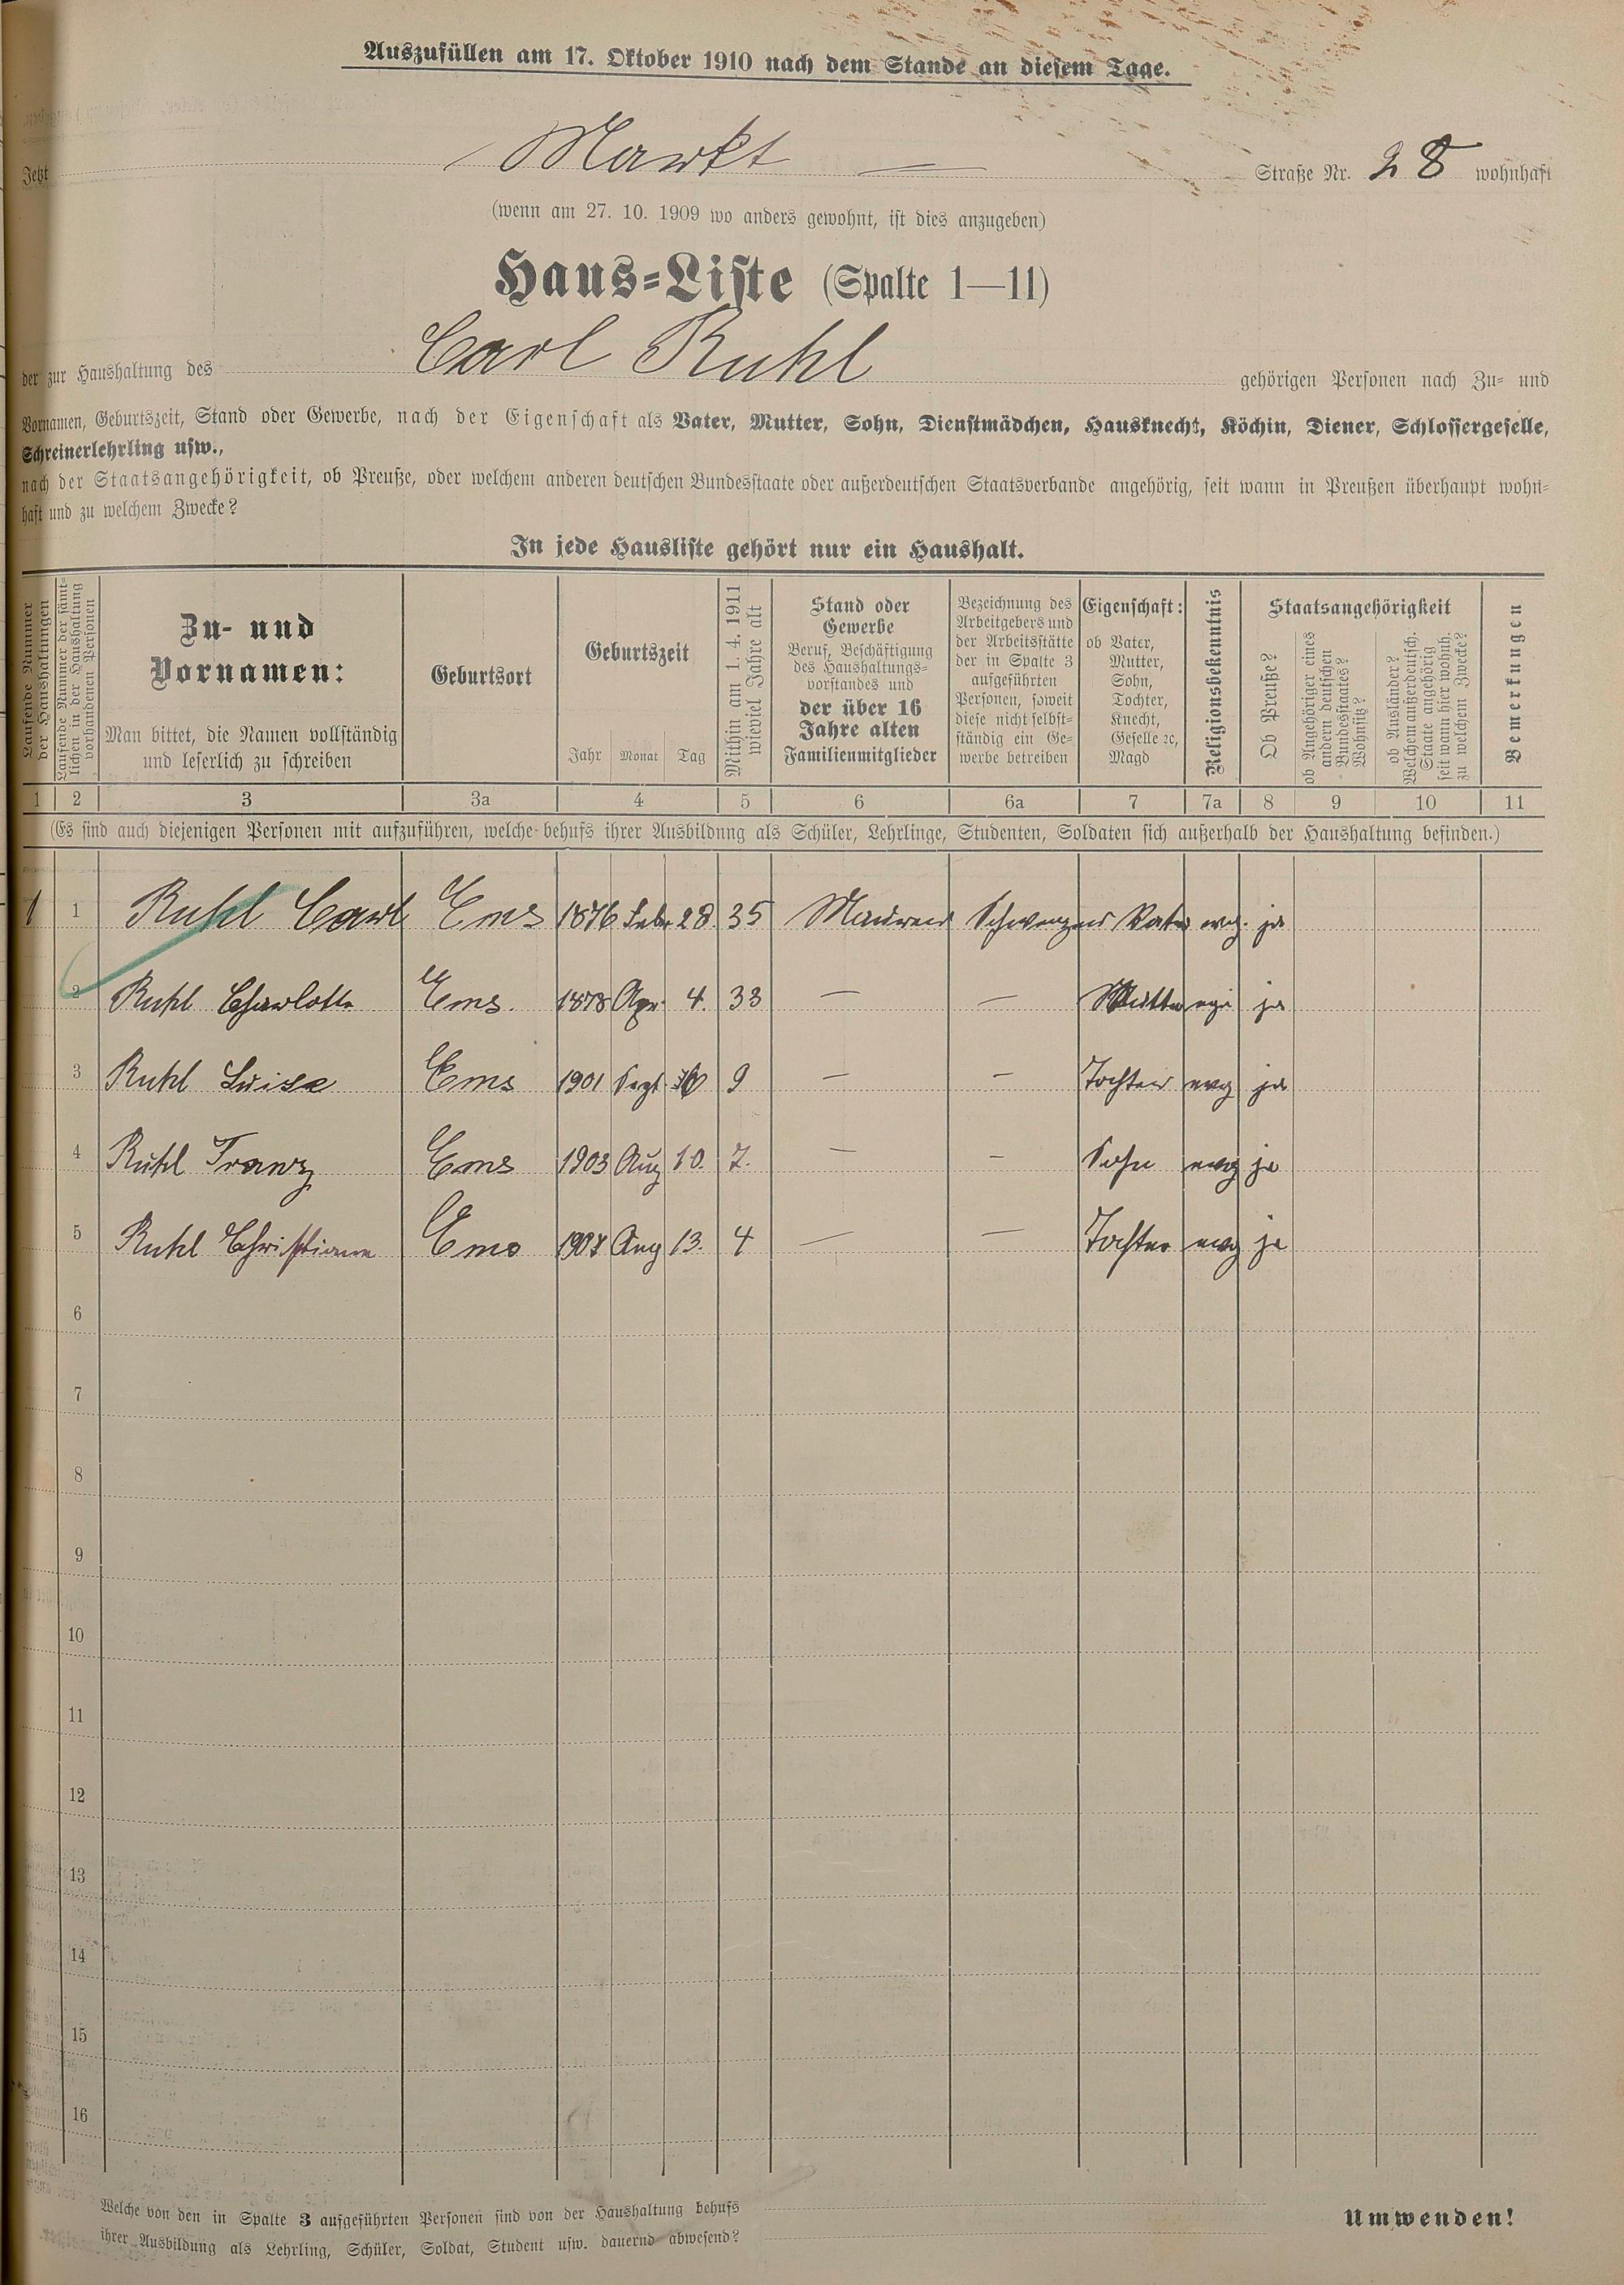 Auszufüllen am 17. Oktober 1910 nach dem Stande an diesem Tage.
Jetzt Markt — Straße Nr. 28 wohnhaft
(wenn am 27. 10. 1909 wo anders gewohnt, ist dies anzugeben)
Haus-Liste (Spalte 1—11)
der zur Haushaltung des Carl Ruhl gehörigen Personen nach Zu- und
Vornamen, Geburtszeit, Stand oder Gewerbe, nach der Eigenschaft als Vater, Mutter, Sohn, Dienstmädchen, Hausknecht, Köchin, Diener, Schlossergeselle,
Schreinerlehrling usw.,
nach der Staatsangehörigkeit, ob Preuße, oder welchem anderen deutschen Bundesstaate oder außerdeutschen Staatsverbande angehörig, seit wann in Preußen überhaupt wohn-
haft und zu welchem Zwecke?
In jede Hausliste gehört nur ein Haushalt.
Laufende Nummer
der Haushaltungen
Laufende Nummer der sämt-
lichen in der Haushaltung
vorhandenen Personen
Zu- und
Vornamen:
Man bittet, die Namen vollständig
und leserlich zu schreiben
Geburtsort
Geburtszeit
Jahr Monat Tag
Mithin am 1. 4. 1911
wieviel Jahre alt
Stand oder
Gewerbe
Beruf, Beschäftigung
des Haushaltungs-
vorstandes und
der über 16
Jahre alten
Familienmitglieder
Bezeichnung des
Arbeitgebers und
der Arbeitsstätte
der in Spalte 3
aufgeführten
Personen, soweit
diese nicht selbst-
ständig ein Ge-
werbe betreiben
Eigenschaft:
ob Vater,
Mutter,
Sohn,
Tochter,
Knecht,
Geselle ꝛc,
Magd
Religionsbekenntnis
Staatsangehörigkeit
Ob Preuße?
ob Angehöriger eines
andern deutschen
Bundesstaates?
Wohnsitz?
ob Ausländer?
Welchem außerdeutsch.
Staate angehörig
seit wann hier wohnh.
zu welchem Zwecke?
Bemerkungen
1 2 3 3a 4 5 6 6a 7 7a 8 9 10 11
(Es sind auch diejenigen Personen mit aufzuführen, welche behufs ihrer Ausbildung als Schüler, Lehrlinge, Studenten, Soldaten sich außerhalb der Haushaltung befinden.)
1 1 Ruhl Carl Ems 1876 Febr 28 35 Maurer Vater evg. ja
2 Ruhl Charlotte Ems. 1878 Apr. 4. 33 — — Mutter evg ja
3 Ruhl Luise Ems 1901 Sept. 9 — — Tochter evg ja
4 Ruhl Franz Ems 1903 Aug 10. 7. — — Sohn evg ja
5 Ruhl Christiane Ems Aug 13. 4 — — Tochter evg ja
6
7
8
9
10
11
12
13
14
15
16
Welche von den in Spalte 3 aufgeführten Personen sind von der Haushaltung behufs
ihrer Ausbildung als Lehrling, Schüler, Soldat, Student usw. dauernd abwesend?
Umwenden!